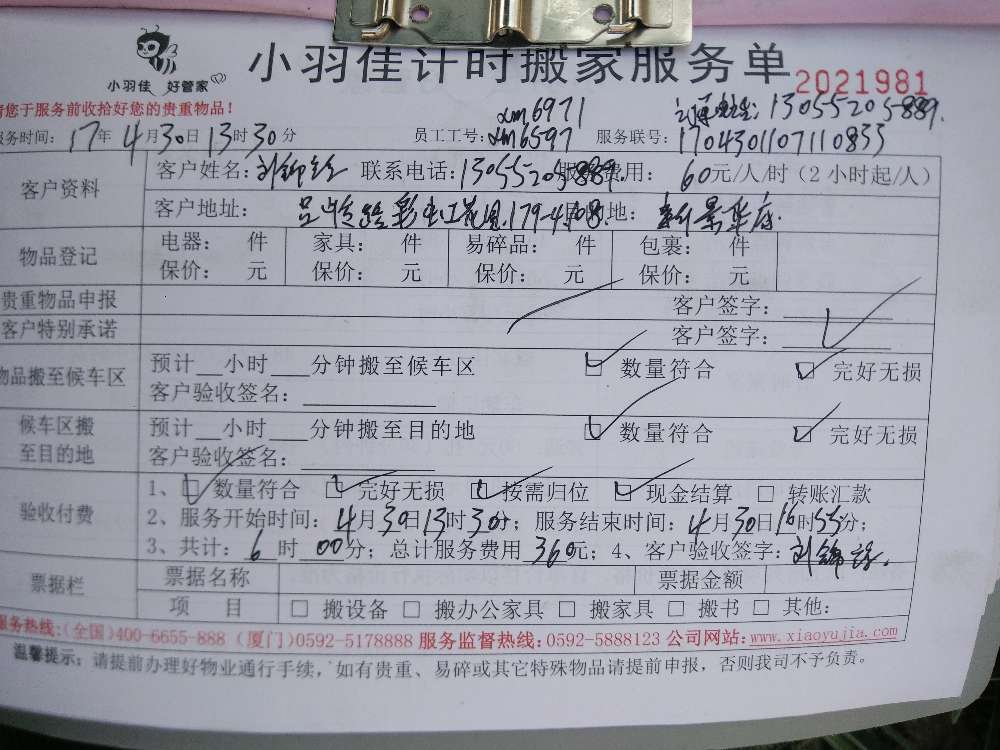 小羽佳 好管家
小羽佳计时搬家服务单
2021981
请您于服务前收拾好您的贵重物品！
xm6971 13055205889.
服务时间：17年4月30日13时30分 员工工号：xm6597 服务联号：1704301107110833
客户资料 客户姓名：刘锦 联系电话：13055205889. 服务费用：60元/人/时（2小时起/人）
客户地址：吕岭路彩虹花园179-408. 目的地：新景华府.
物品登记 电器： 件 家具： 件 易碎品： 件 包裹： 件
保价： 元 保价： 元 保价： 元 保价： 元
贵重物品申报 客户签字：
客户特别承诺 客户签字：
物品搬至候车区 预计__小时___分钟搬至候车区 ☑ 数量符合 ☑ 完好无损
客户验收签名：
候车区搬至目的地 预计__小时___分钟搬至目的地 ☑ 数量符合 ☑ 完好无损
客户验收签名：
验收付费 1、☑ 数量符合 ☑ 完好无损 ☑ 按需归位 ☑ 现金结算 □ 转账汇款
2、服务开始时间：4月30日13时30分；服务结束时间：4月30日16时55分；
3、共计：6时00分；总计服务费用360元；4、客户验收签字：刘锦
票据栏 票据名称 票据金额
项 目 □ 搬设备 □ 搬办公家具 □ 搬家具 □ 搬书 □ 其他：
服务热线：(全国)400-6655-888 (厦门)0592-5178888 服务监督热线：0592-5888123 公司网站：www.xiaoyujia.com
温馨提示：请提前办理好物业通行手续，如有贵重、易碎或其它特殊物品请提前申报，否则我司不予负责。